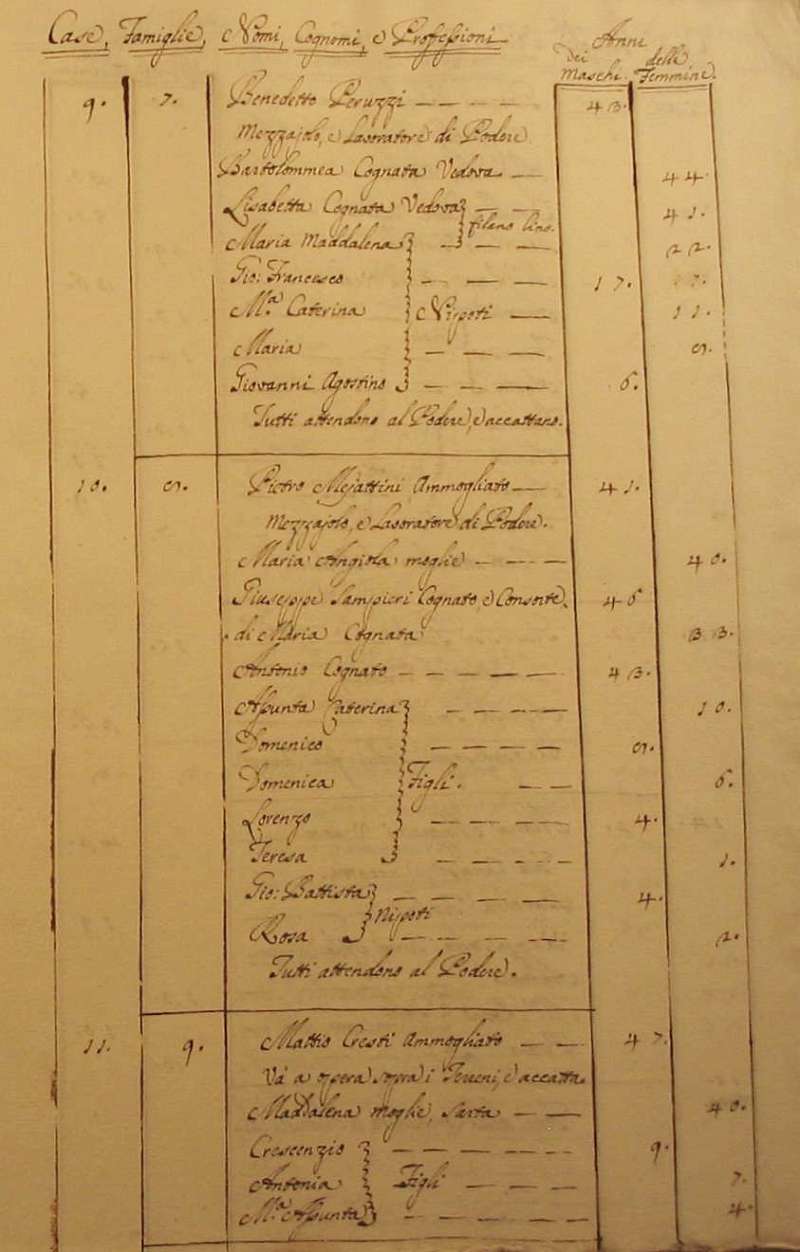 Case, Famiglie, Nomi, Cognomi, e Professioni Anni
Dei Maschi delle Femmine
9. 7. Benedetto Peruzzi 43.
Mezzajolo, e Lavoratore di Podere
Bartolommea Cognata Vedova 44.
Lisabetta Cognata Vedova 41.
filano lino.
Maria Maddalena 22.
Gio: Francesco 17.
M.a Caterina Nipoti 11.
Maria
Giovanni Agostino 6.
Tutti attendono al Podere, e accattano.
10. Pietro Ammogliato 41.
Mezzajolo, e Lavoratore di Podere.
Maria Angiola moglie 40.
Giuseppe Sampieri Cognato, e Consorte, 46
di Maria Cognata 33.
Antonio Cognato 43.
Assunta Caterina 10.
Domenico
Domenica Figli. 6.
Lorenzo 4.
Teresa 1.
Gio: Battista 4.
Nipoti
Rosa 2.
Tutti attendono al Podere.
11. 9. Mattio Cresti Ammogliato 47.
Và a opera sopra i Poderi, e accatta.
Maddalena moglie, Sarta 40.
Crescenzio 9.
Antonia Figli 7.
M.a Assunta 4.